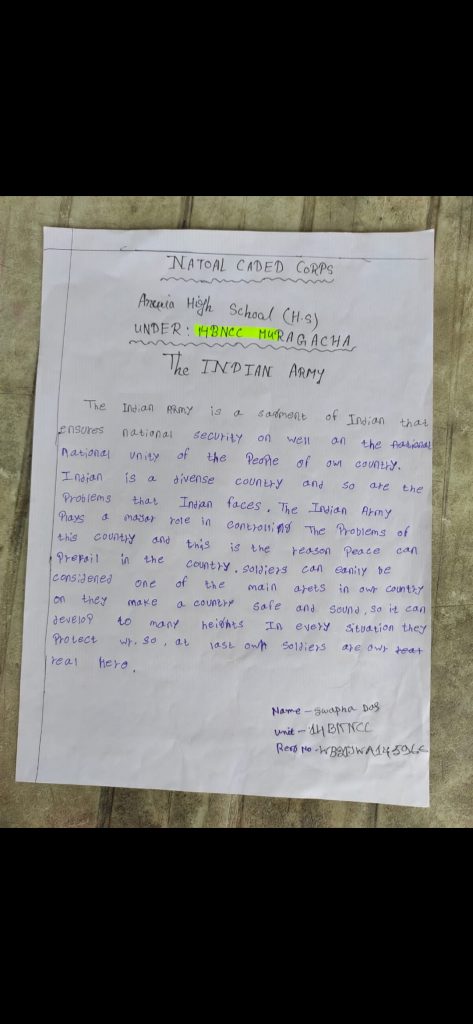 NATOAL CADED CORPS
High School (H.S)
UNDER: 14BNCC MURAGACHA
The INDIAN ARMY
The Indian ARMY is a sadment of Indian that
ensures national security on well an the national
national unity of the People of own country.
Indian is a divense country and so are the
Problems that Indian faces. The Indian Army
Plays a mayor role in controlling The Problems of
this country and this is the reason Peace can
Prepail in the country. soldiers can eanily be
considened one of the main arets in own country
on they make a country safe and sound, so it can
develop to many heights In every situation they
Protect ur. so, at last own soldiers are owr
real Hero.
Name - Swapna Das
unit - 14BNNCC